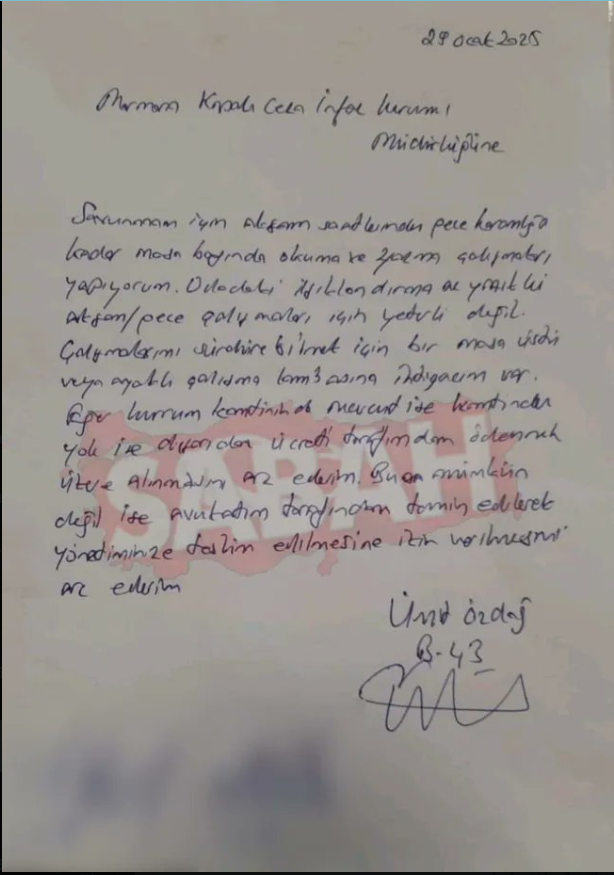 29 Ocak 2025
Marmara Kapalı Ceza İnfaz kurumu
Müdürlüğüne
Savunmam için akşam saatlerinden gece karanlığa
kadar masa başında okuma ve yazma çalışmaları
yapıyorum. Odadaki ışıklandırma
akşam/gece çalışmaları için yeterli değil.
Çalışmalarımı sürdürebilmek için bir masa üstü
veya ayaklı çalışma lambasına ihtiyacım var.
Eğer kurum kantininde mevcut ise kantinden
yok ise dışarıdan ücreti tarafımdan ödenmek
üzere alınmasını arz ederim. Bu mümkün
değil ise avukatım tarafından temin edilerek
yönetiminize teslim edilmesine izin verilmesini
arz ederim
Ümit Özdağ
B-43
SABAH